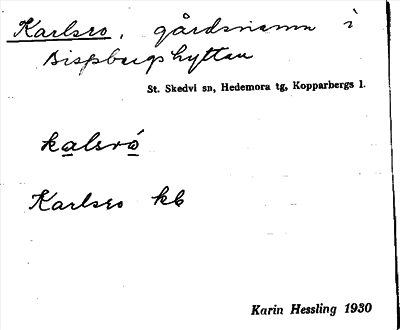 Karlsro, gårdsnamn i
Bispbergshyttan
St. Skedvi sn, Hedemora tg, Kopparbergs l.
kalsró
Karlsro kb
Karin Hessling 1930